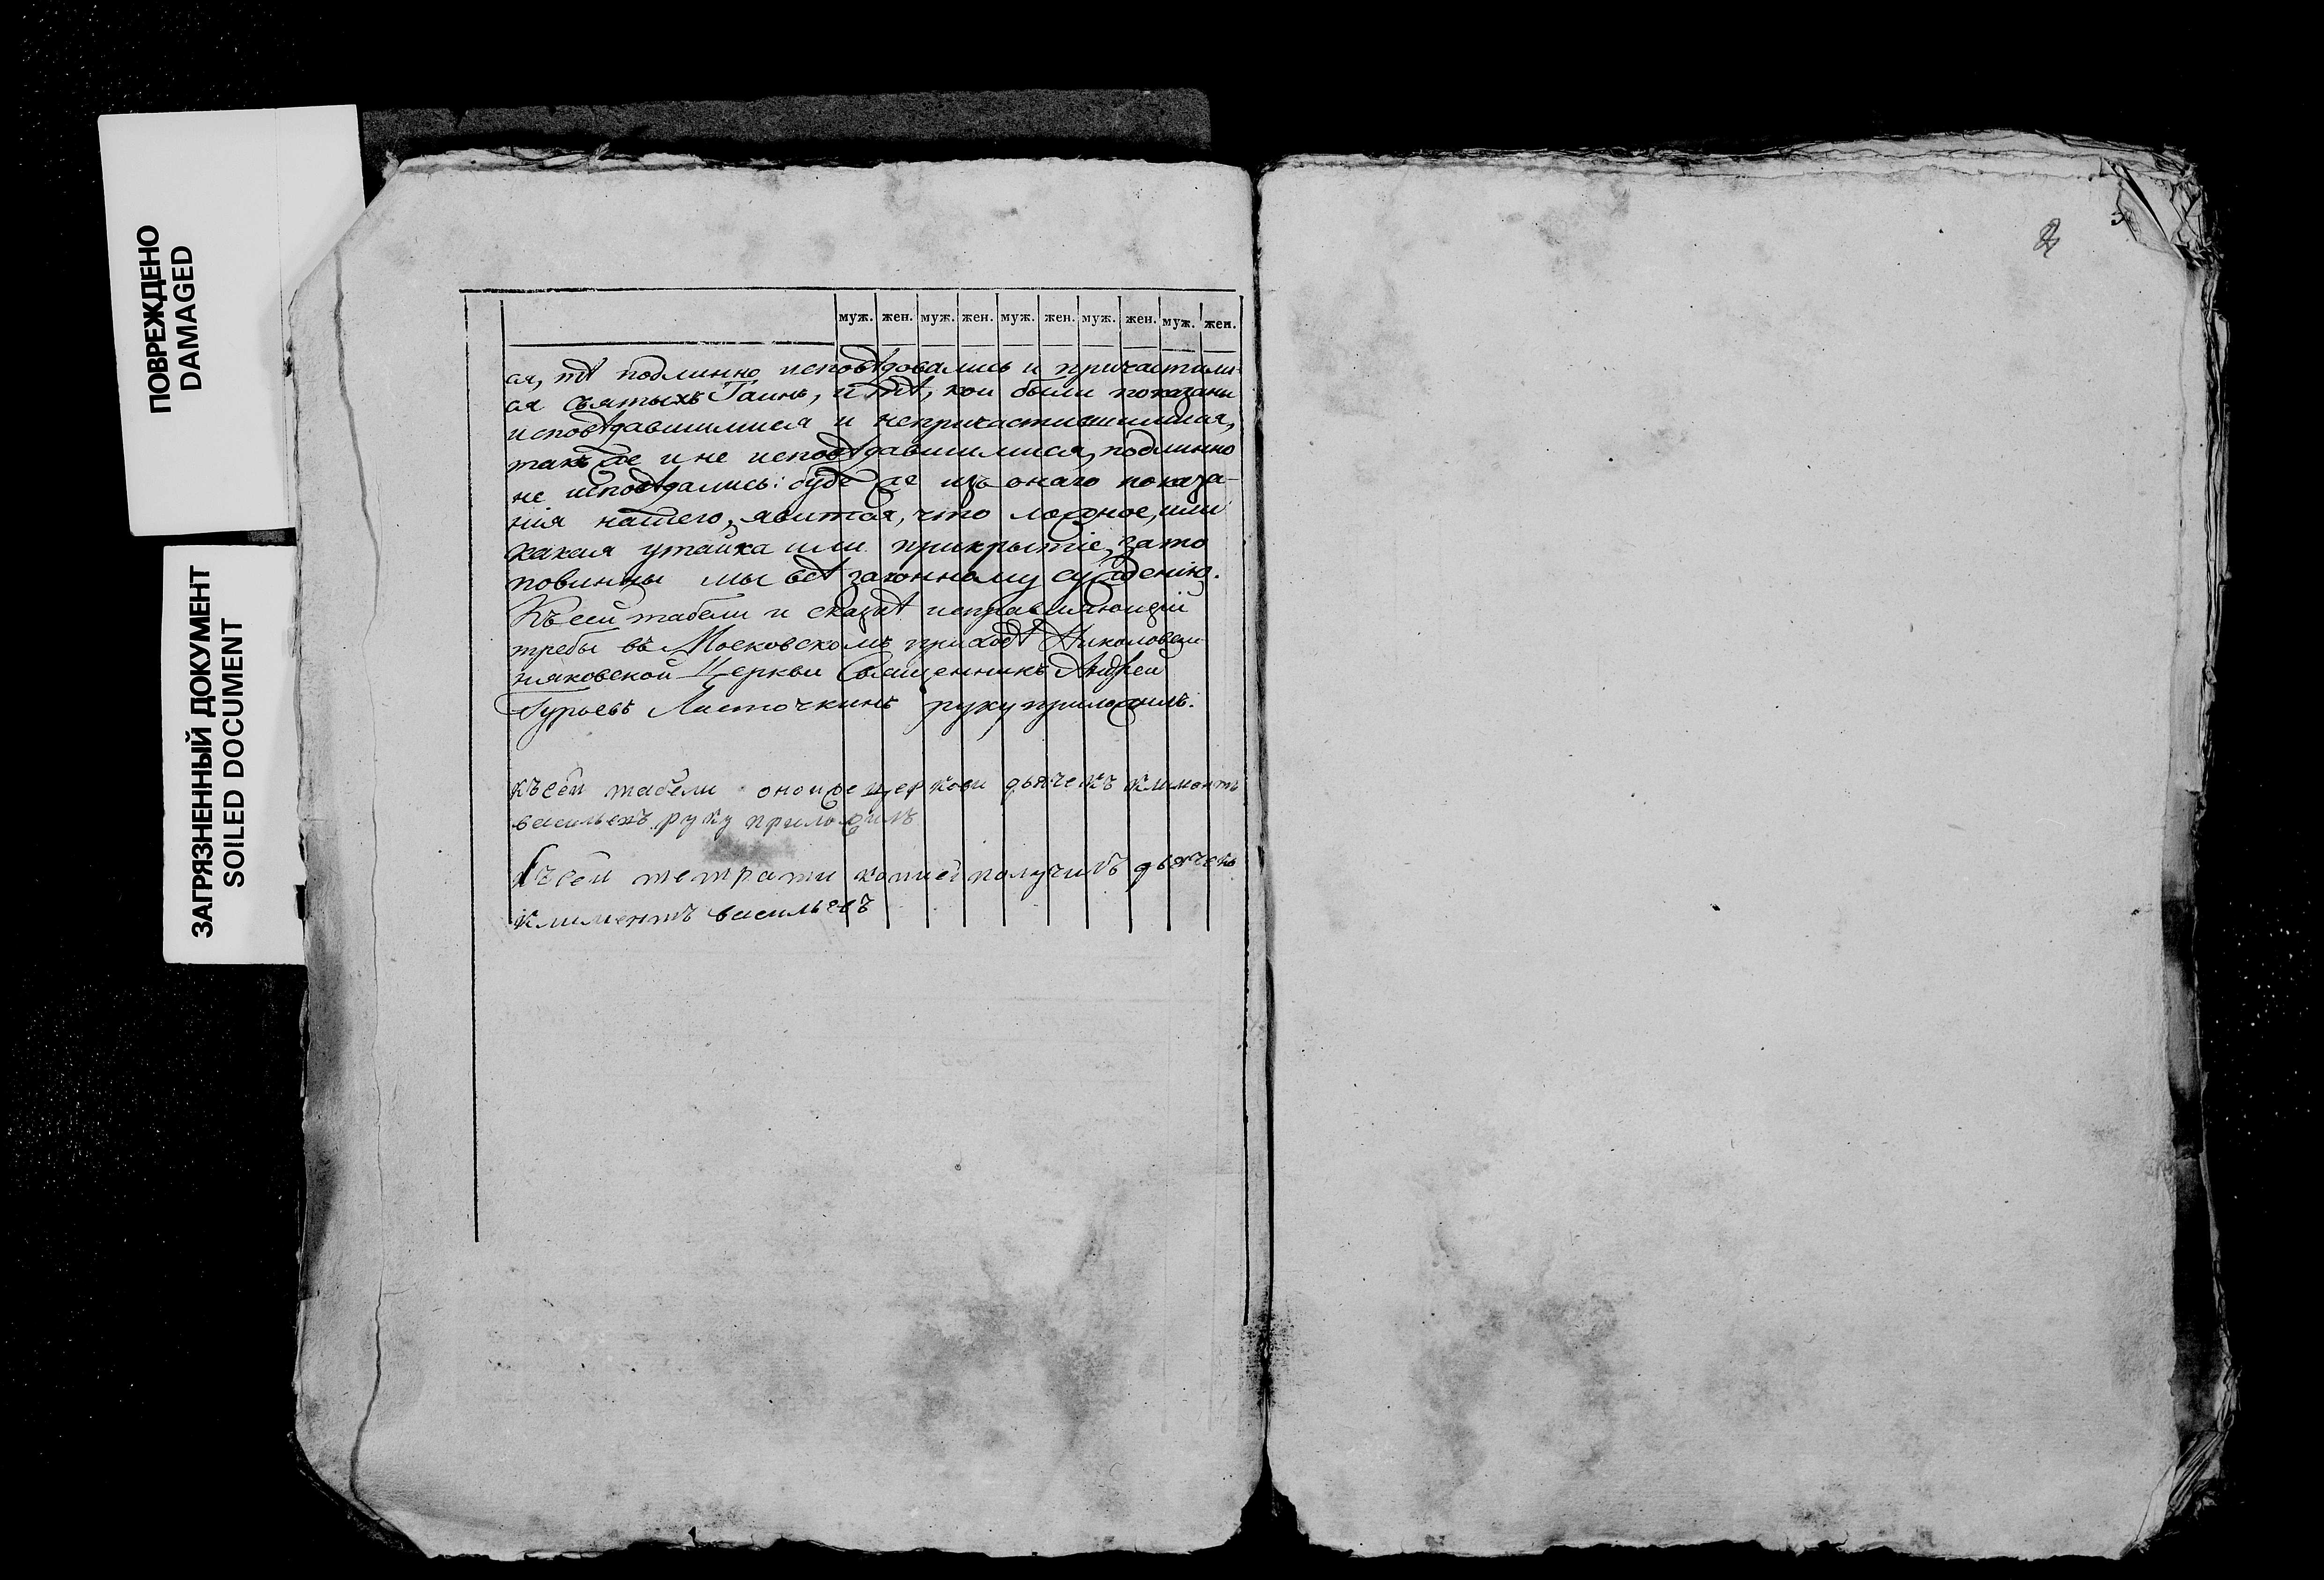 ПОВРЕЖДЕНО
DAMAGED
ЗАГРЯЗНЕННЫЙ ДОКУМЕНТ
SOILED DOCUMENT
муж. жен. муж. жен. муж. жен. муж. жен. муж. жен.
ся, тѣ подлинно исповѣдовались и причастили-
ся Святыхъ Таинъ, и тѣ, кои были показаны
исповѣдавшимися и непричастившимися,
такъ же и не исповѣдавшимися, подлинно
не исповѣдались: буде же изъ онаго показа-
нія нашего, явится, что ложное, или
какая утайка или прикрытіе, за то
повинны мы всѣ законному сужденію.
Къ сей табели и сказкѣ исправляющій
требы въ Московскомъ приходѣ
Церкви Священникъ Андрей
Гурьевъ Ласточкинъ руку приложилъ.
къ сей табели оной же церкови дьячекъ климентъ
васильевъ руку приложилъ
Къ сей тетрати копией получилъ дьячекъ
климентъ васильевъ